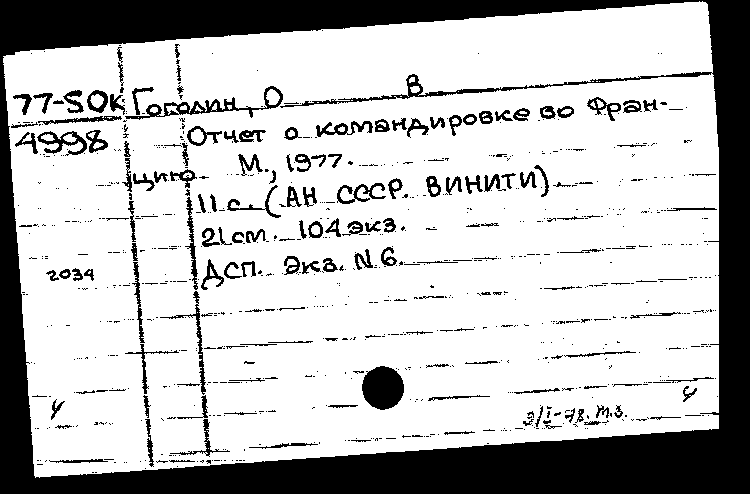 77-5ОК Гоголин, О В
4998 Отчет о командировке во Фран-
цию. М., 1977.
11 с. (АН СССР. ВИНИТИ).
21 см. 104 экз.
2034 ДСП. Экз. N 6.
ч ч
3/I-78. т.з.